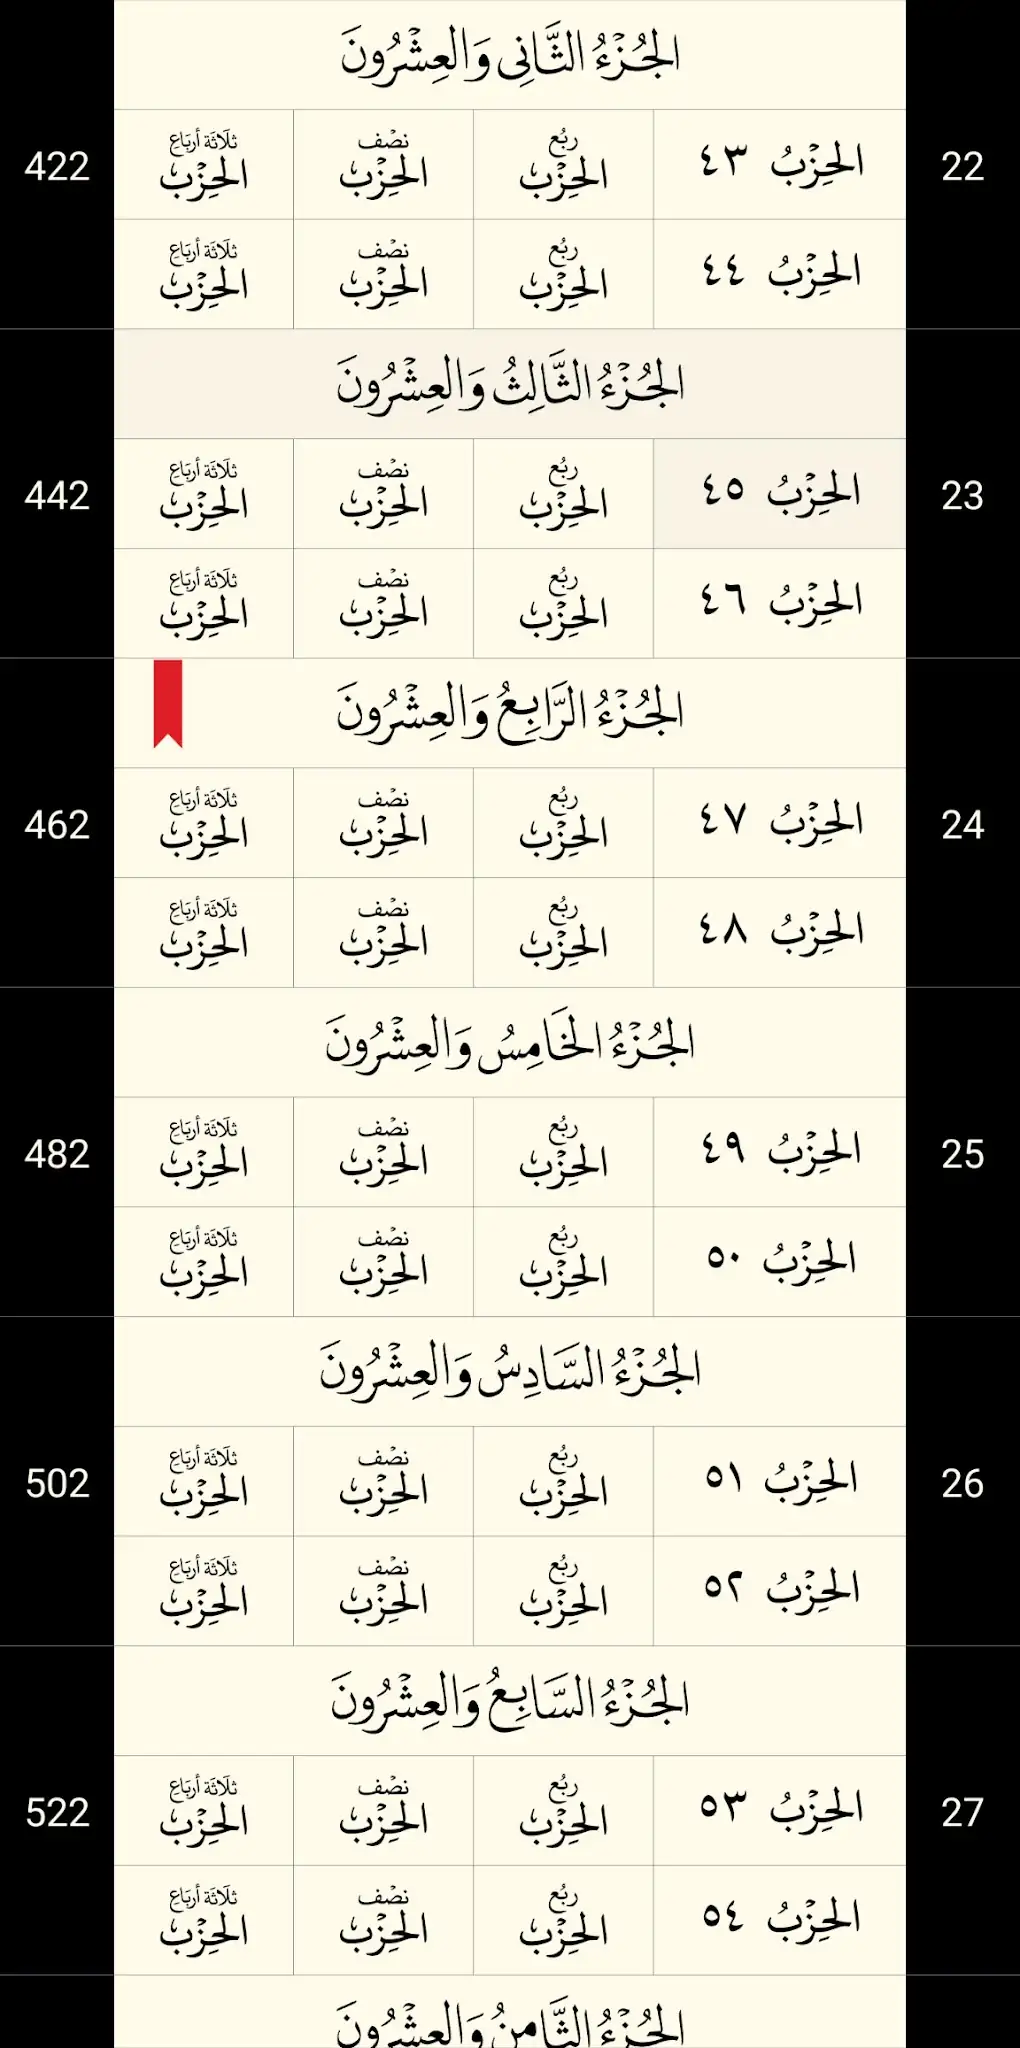 الجُزْءُ الثَّانِى وَالعِشْرُونَ
22 الحِزْبُ ٤٣ رُبُع الحِزْب نصْف الحِزْب ثلَاثَة أربَاعِ الحِزْب 422
الحِزْبُ ٤٤ رُبُع الحِزْب نصْف الحِزْب ثلَاثَة أربَاعِ الحِزْب
الجُزْءُ الثَّالِثُ وَالعِشْرُونَ
23 الحِزْبُ ٤٥ رُبُع الحِزْب نصْف الحِزْب ثلَاثَة أربَاعِ الحِزْب 442
الحِزْبُ ٤٦ رُبُع الحِزْب نصْف الحِزْب ثلَاثَة أربَاعِ الحِزْب
الجُزْءُ الرَّابِعُ وَالعِشْرُونَ
24 الحِزْبُ ٤٧ رُبُع الحِزْب نصْف الحِزْب ثلَاثَة أربَاعِ الحِزْب 462
الحِزْبُ ٤٨ رُبُع الحِزْب نصْف الحِزْب ثلَاثَة أربَاعِ الحِزْب
الجُزْءُ الخَامِسُ وَالعِشْرُونَ
25 الحِزْبُ ٤٩ رُبُع الحِزْب نصْف الحِزْب ثلَاثَة أربَاعِ الحِزْب 482
الحِزْبُ ٥٠ رُبُع الحِزْب نصْف الحِزْب ثلَاثَة أربَاعِ الحِزْب
الجُزْءُ السَّادِسُ وَالعِشْرُونَ
26 الحِزْبُ ٥١ رُبُع الحِزْب نصْف الحِزْب ثلَاثَة أربَاعِ الحِزْب 502
الحِزْبُ ٥٢ رُبُع الحِزْب نصْف الحِزْب ثلَاثَة أربَاعِ الحِزْب
الجُزْءُ السَّابِعُ وَالعِشْرُونَ
27 الحِزْبُ ٥٣ رُبُع الحِزْب نصْف الحِزْب ثلَاثَة أربَاعِ الحِزْب 522
الحِزْبُ ٥٤ رُبُع الحِزْب نصْف الحِزْب ثلَاثَة أربَاعِ الحِزْب
الجُزْءُ الثَّامِنُ وَالعِشْرُونَ